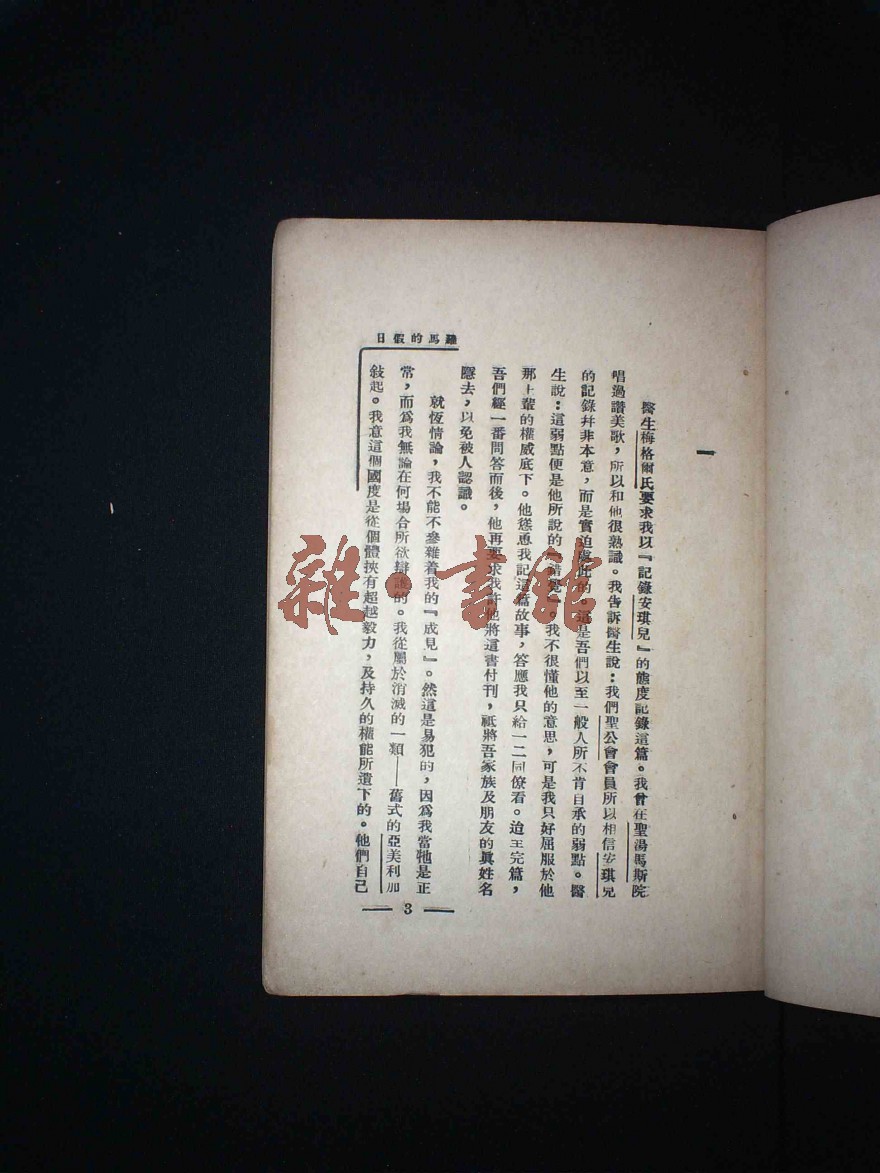 日假的馬羅
一
醫生梅格爾氏要求我以『記錄安琪兒』的態度記錄這篇。我曾在聖湯馬斯院
唱過讚美歌，所以和他很熟識。我告訴醫生說：我們聖公會會員所以相信安琪兒
的記錄幷非本意，而是實迫處此的。這是吾們以至一般人所不肯自承的弱點。醫
生說：這弱點便是他所說的『錯覺』。我不很懂他的意思，可是我只好屈服於他
那上輩的權威底下。他慫恿我記這篇故事，答應我只給一二同僚看。迨至完篇，
吾們經一番問答而後，他再要求我許他將這書付刊，祇將吾家族及朋友的眞姓名
隱去，以免被人認識。
就恆情論，我不能不參雜着我的『成見』。然這是易犯的，因爲我當牠是正
常，而爲我無論在何場合所欲辯護的。我從屬於消滅的一類——舊式的亞美利加
敍起。我意這個國度是從個體挾有超越毅力，及持久的權能所遺下的。他們自己
3
雜·書館